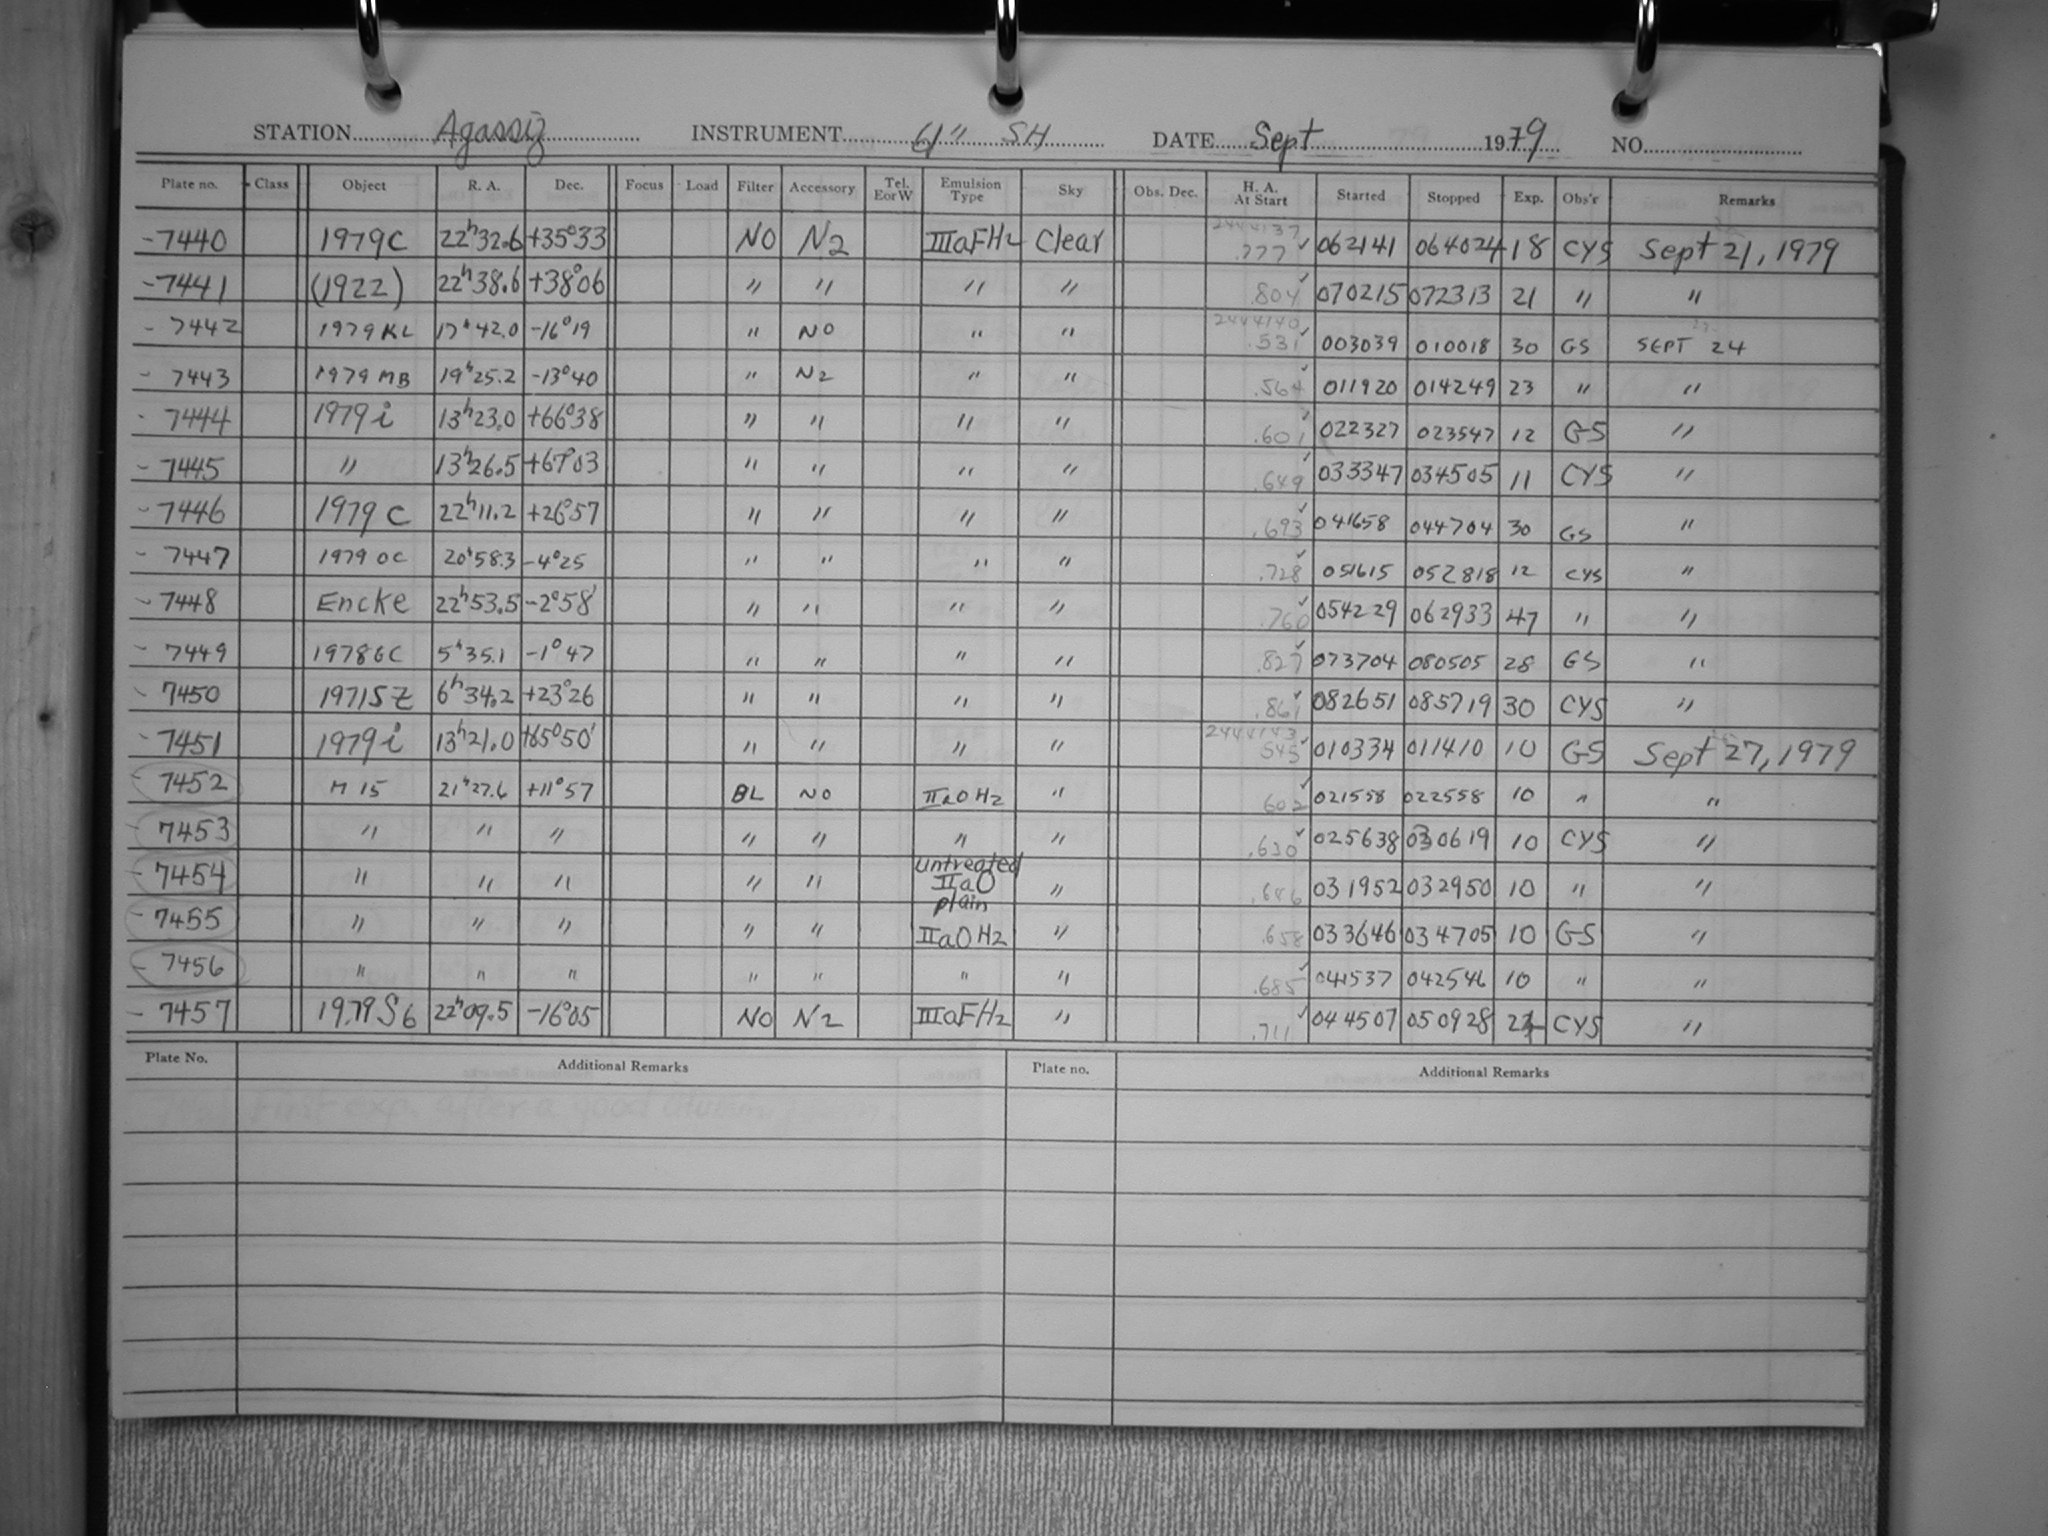 STATION Agassiz INSTRUMENT 61" SH DATE Sept 1979 NO.
Plate no. Class Object R. A. Dec. Focus Load Filter Accessory Tel. EorW Emulsion Type Sky Obs. Dec. H. A. At Start Started Stopped Exp. Obs'r Remarks
2444137
-7440 1979C 22h32.6 +35°33 NO N2 IIIaFH2 Clear .777 ✓ 062141 064024 18 CYS Sept 21, 1979
-7441 (1922) 22h38.6 +38°06 " " " " .804 ✓ 070215 072313 21 " "
2444140
- 7442 1979KL 17h42.0 -16°19 " NO " " .531 ✓ 003039 010018 30 GS SEPT 24
- 7443 1979 MB 19h25.2 -13°40 " N2 " " .564 ✓ 011920 014249 23 " "
- 7444 1979i 13h23.0 +66°38 " " " " .601 ✓ 022327 023547 12 GS "
- 7445 " 13h26.5 +67°03 " " " " .649 ✓ 033347 034505 11 CYS "
- 7446 1979 C 22h11.2 +26°57 " " " " .693 ✓ 041658 044704 30 GS "
- 7447 1979 OC 20h58.3 -4°25 " " " " .728 ✓ 051615 052818 12 CYS "
- 7448 Encke 22h53.5 -2°58' " " " " .760 ✓ 054229 062933 47 " "
- 7449 1978GC 5h35.1 -1°47 " " " " .827 ✓ 073704 080505 28 GS "
- 7450 1971SZ 6h34.2 +23°26 " " " " .861 ✓ 082651 085719 30 CYS "
2444143
- 7451 1979i 13h21.0 +65°50' " " " " .545 ✓ 010334 011410 10 GS Sept 27, 1979
- 7452 M 15 21h27.6 +11°57 BL NO IIaOH2 " .602 ✓ 021558 022558 10 " "
- 7453 " " " " " " " .630 ✓ 025638 030619 10 CYS "
- 7454 " " " " " untreated IIaO plain " .646 031952 032950 10 " "
- 7455 " " " " " IIaOH2 " .658 033646 034705 10 GS "
- 7456 " " " " " " " .685 ✓ 041537 042546 10 " "
- 7457 1979S6 22h09.5 -16°05 NO N2 IIIaFH2 " .711 ✓ 044507 050928 24 CYS "
Plate No. Additional Remarks Plate no. Additional Remarks